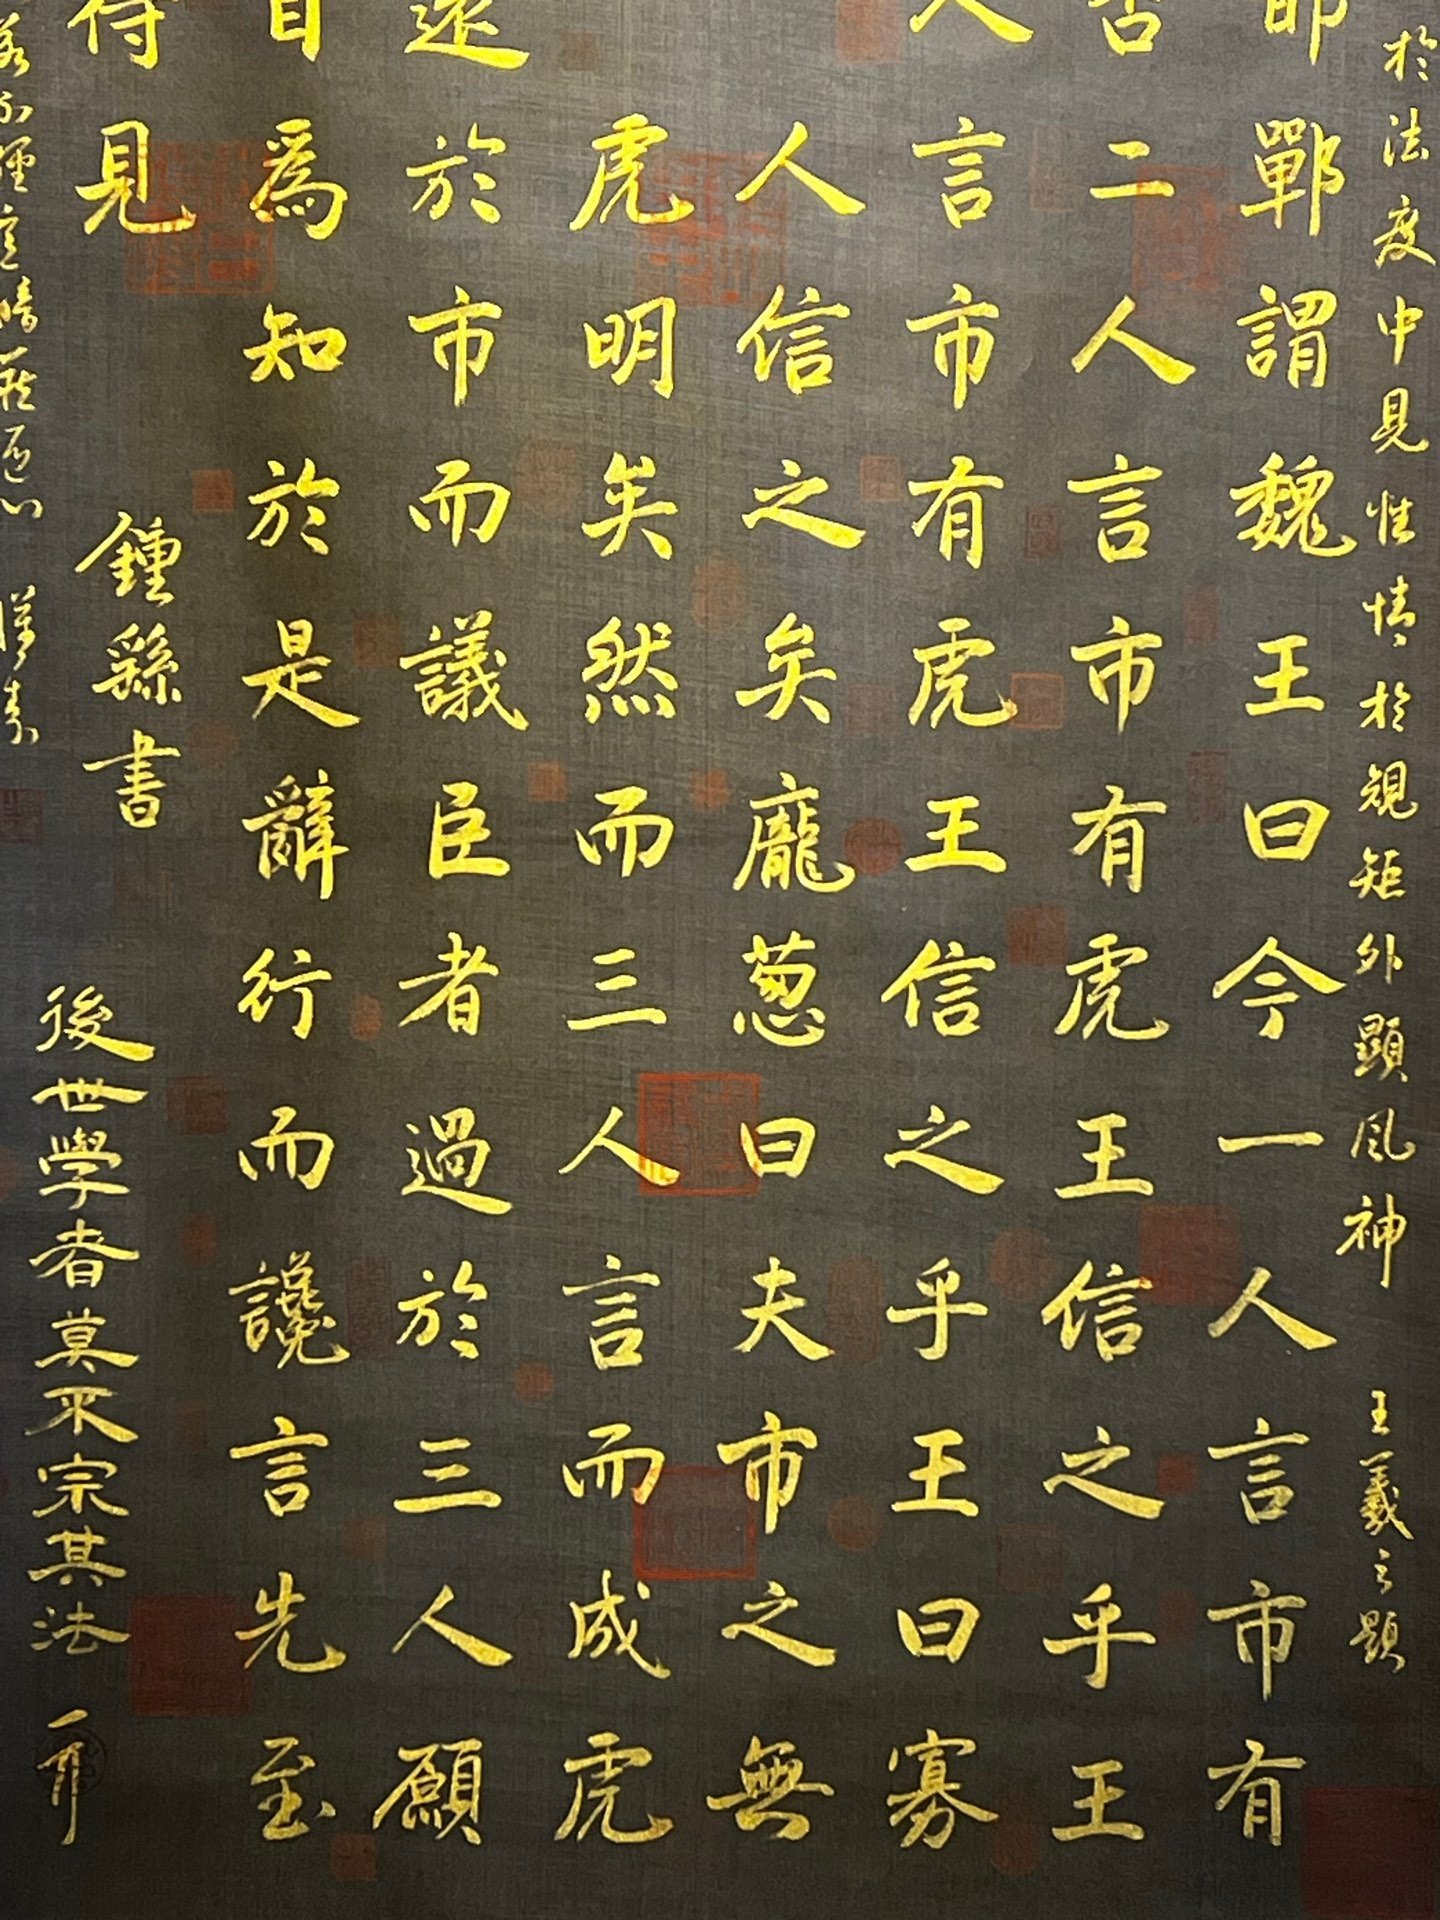 於法度中見性情於規矩外顯風神 王羲之題
鄲謂魏王曰今一人言市有
否二人言市有虎王信之乎王
人言市有虎王信之乎王曰寡
人信之矣龐葱曰夫市之無
虎明矣然而三人言而成虎
遠於市而議臣者過於三人願
自為知於是辭行而讒言先至
得見
鍾繇書
後世學者莫不宗其法